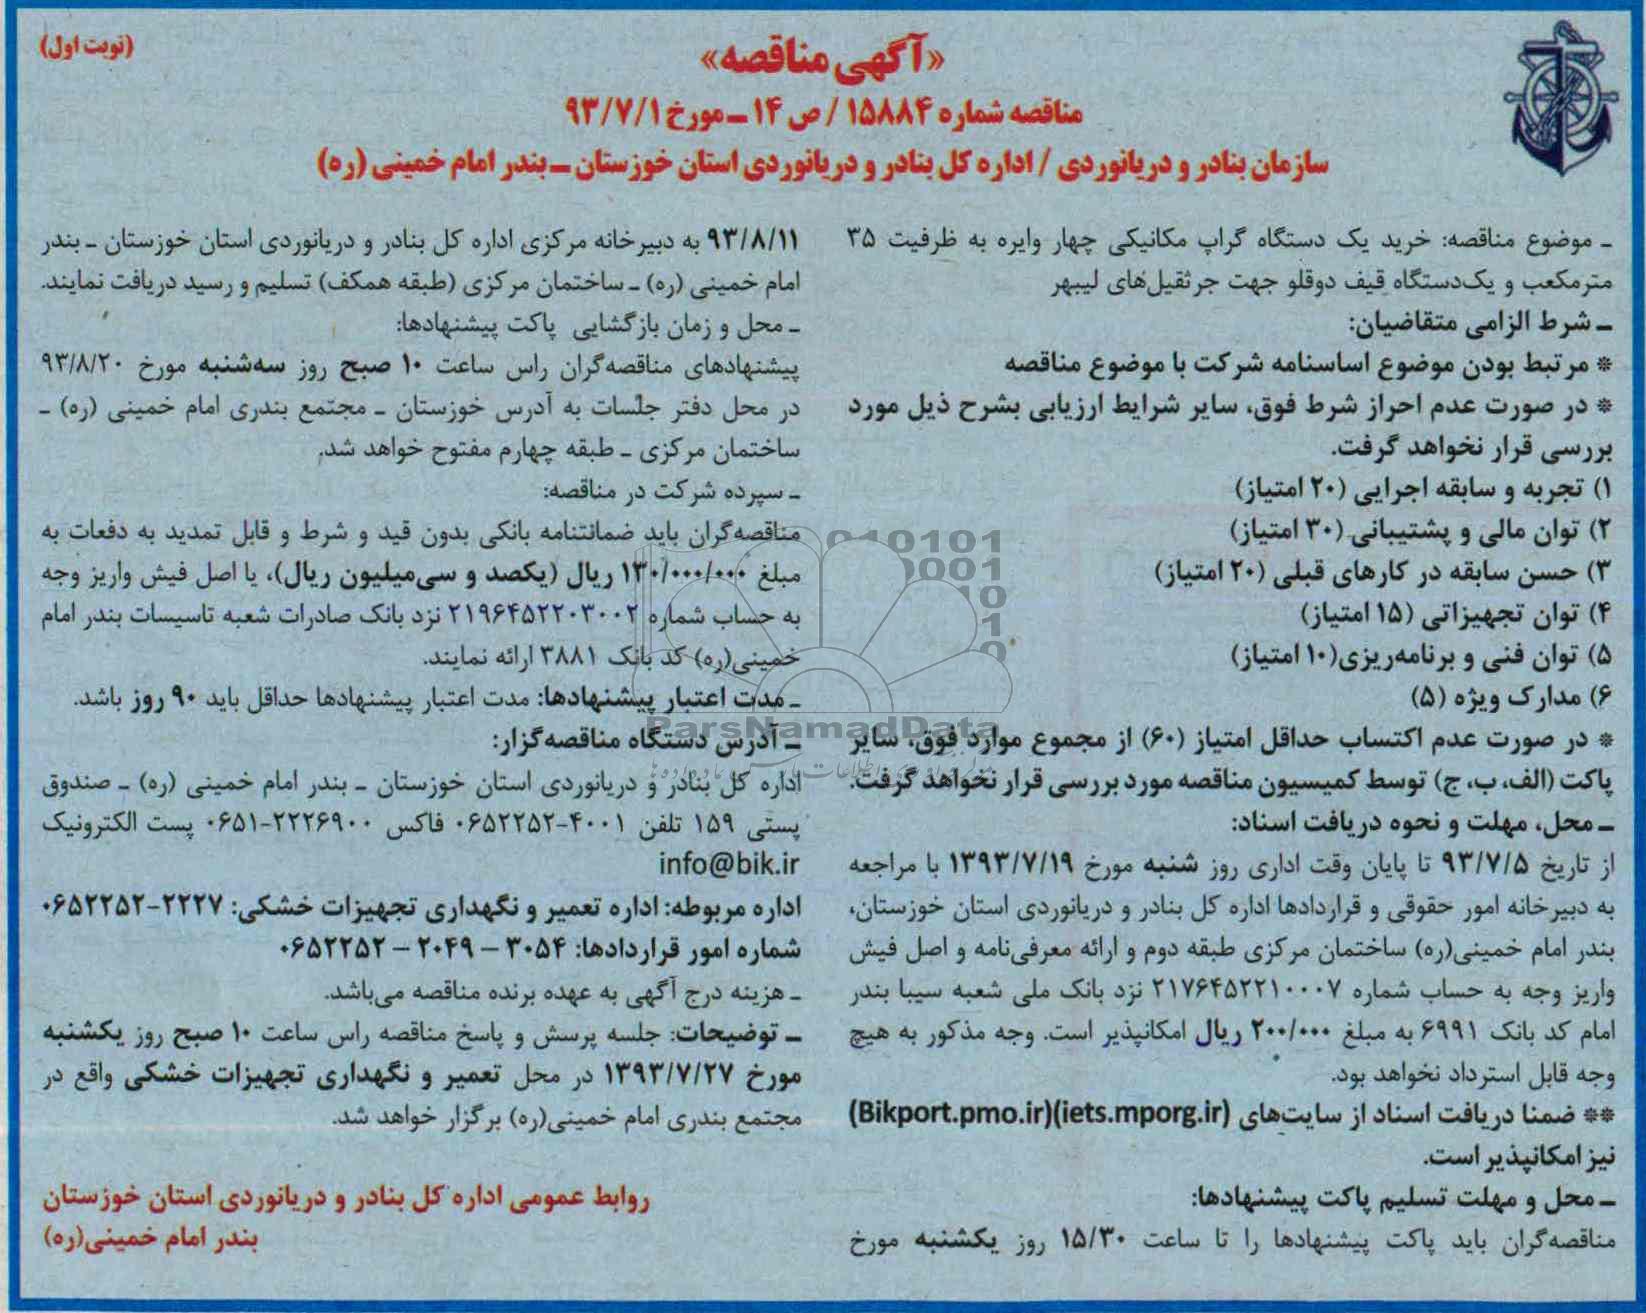 (نوبت اول)
«آگهی مناقصه»
مناقصه شماره ۱۵۸۸۴ / ص ۱۴ ـ مورخ ۹۳/۷/۱
سازمان بنادر و دریانوردی / اداره کل بنادر و دریانوردی استان خوزستان ـ بندر امام خمینی (ره)
ـ موضوع مناقصه: خرید یک دستگاه گراپ مکانیکی چهار وایره به ظرفیت ۳۵
مترمکعب و یک‌دستگاه قیف دوقلو جهت جرثقیل‌های لیبهر
ـ شرط الزامی متقاضیان:
* مرتبط بودن موضوع اساسنامه شرکت با موضوع مناقصه
* در صورت عدم احراز شرط فوق، سایر شرایط ارزیابی بشرح ذیل مورد
بررسی قرار نخواهد گرفت.
۱) تجربه و سابقه اجرایی (۲۰ امتیاز)
۲) توان مالی و پشتیبانی (۳۰ امتیاز)
۳) حسن سابقه در کارهای قبلی (۲۰ امتیاز)
۴) توان تجهیزاتی (۱۵ امتیاز)
۵) توان فنی و برنامه‌ریزی(۱۰ امتیاز)
۶) مدارک ویژه (۵)
* در صورت عدم اکتساب حداقل امتیاز (۶۰) از مجموع موارد فوق، سایر
پاکت (الف، ب، ج) توسط کمیسیون مناقصه مورد بررسی قرار نخواهد گرفت.
ـ محل، مهلت و نحوه دریافت اسناد:
از تاریخ ۹۳/۷/۵ تا پایان وقت اداری روز شنبه مورخ ۱۳۹۳/۷/۱۹ با مراجعه
به دبیرخانه امور حقوقی و قراردادها اداره کل بنادر و دریانوردی استان خوزستان،
بندر امام خمینی(ره) ساختمان مرکزی طبقه دوم و ارائه معرفی‌نامه و اصل فیش
واریز وجه به حساب شماره ۲۱۷۶۴۵۲۲۱۰۰۰۷ نزد بانک ملی شعبه سیبا بندر
امام کد بانک ۶۹۹۱ به مبلغ ۲۰۰/۰۰۰ ریال امکانپذیر است. وجه مذکور به هیچ
وجه قابل استرداد نخواهد بود.
** ضمنا دریافت اسناد از سایت‌های (Bikport.pmo.ir)(iets.mporg.ir)
نیز امکانپذیر است.
ـ محل و مهلت تسلیم پاکت پیشنهادها:
مناقصه‌گران باید پاکت پیشنهادها را تا ساعت ۱۵/۳۰ روز یکشنبه مورخ
۹۳/۸/۱۱ به دبیرخانه مرکزی اداره کل بنادر و دریانوردی استان خوزستان ـ بندر
امام خمینی (ره) ـ ساختمان مرکزی (طبقه همکف) تسلیم و رسید دریافت نمایند.
ـ محل و زمان بازگشایی پاکت پیشنهادها:
پیشنهادهای مناقصه‌گران راس ساعت ۱۰ صبح روز سه‌شنبه مورخ ۹۳/۸/۲۰
در محل دفتر جلسات به آدرس خوزستان ـ مجتمع بندری امام خمینی (ره) ـ
ساختمان مرکزی ـ طبقه چهارم مفتوح خواهد شد.
ـ سپرده شرکت در مناقصه:
مناقصه‌گران باید ضمانتنامه بانکی بدون قید و شرط و قابل تمدید به دفعات به
مبلغ ۱۳۰/۰۰۰/۰۰۰ ریال (یکصد و سی‌میلیون ریال)، یا اصل فیش واریز وجه
به حساب شماره ۲۱۹۶۴۵۲۲۰۳۰۰۲ نزد بانک صادرات شعبه تاسیسات بندر امام
خمینی(ره) کد بانک ۳۸۸۱ ارائه نمایند.
ـ مدت اعتبار پیشنهادها: مدت اعتبار پیشنهادها حداقل باید ۹۰ روز باشد.
ـ آدرس دستگاه مناقصه‌گزار:
اداره کل بنادر و دریانوردی استان خوزستان ـ بندر امام خمینی (ره) ـ صندوق
پستی ۱۵۹ تلفن ۴۰۰۱-۰۶۵۲۲۵۲ فاکس ۲۲۲۶۹۰۰-۰۶۵۱ پست الکترونیک
info@bik.ir
اداره مربوطه: اداره تعمیر و نگهداری تجهیزات خشکی: ۲۲۲۷-۰۶۵۲۲۵۲
شماره امور قراردادها: ۳۰۵۴ – ۲۰۴۹ – ۰۶۵۲۲۵۲
ـ هزینه درج آگهی به عهده برنده مناقصه می‌باشد.
ـ توضیحات: جلسه پرسش و پاسخ مناقصه راس ساعت ۱۰ صبح روز یکشنبه
مورخ ۱۳۹۳/۷/۲۷ در محل تعمیر و نگهداری تجهیزات خشکی واقع در
مجتمع بندری امام خمینی(ره) برگزار خواهد شد.
روابط عمومی اداره کل بنادر و دریانوردی استان خوزستان
بندر امام خمینی(ره)
ParsNamadData